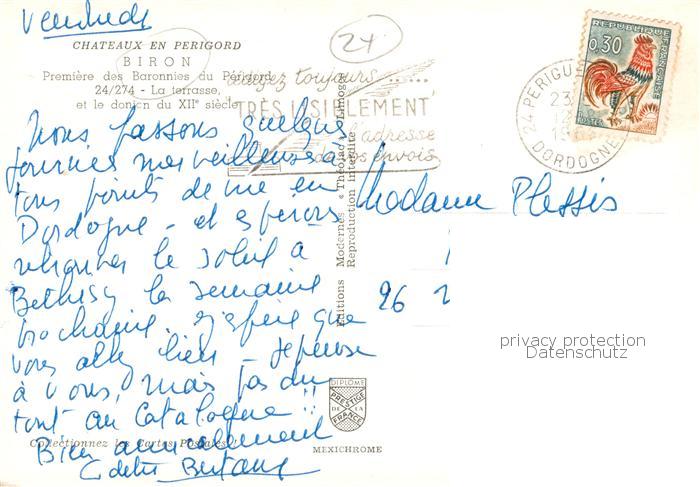 Vendredi
CHATEAUX EN PERIGORD
BIRON
Première des Baronnies du Périgord
24/274 - La terrasse,
et le donjon du XIIe siècle
24
toujours
TRÈS LISIBLEMENT
l'adresse
de vos envois
REPUBLIQUE FRANÇAISE
0,30
POSTES
24 PERIGUEUX
DORDOGNE
Nous passons quelques
journées merveilleuses à
tous points de vue en
Dordogne - et espérons
retrouver le soleil à
Bethisy la semaine
prochaine. J'espère que
vous allez bien - Je pense
à vous, mais pas du
tout au Catalogue !!
Bien amicalement
Madame Plessis
Editions Modernes « Théojac » Limoges
Reproduction interdite
privacy protection
Datenschutz
DIPLOME
PRESTIGE
DE LA
FRANCE
Collectionnez les Cartes Postales !
MEXICHROME